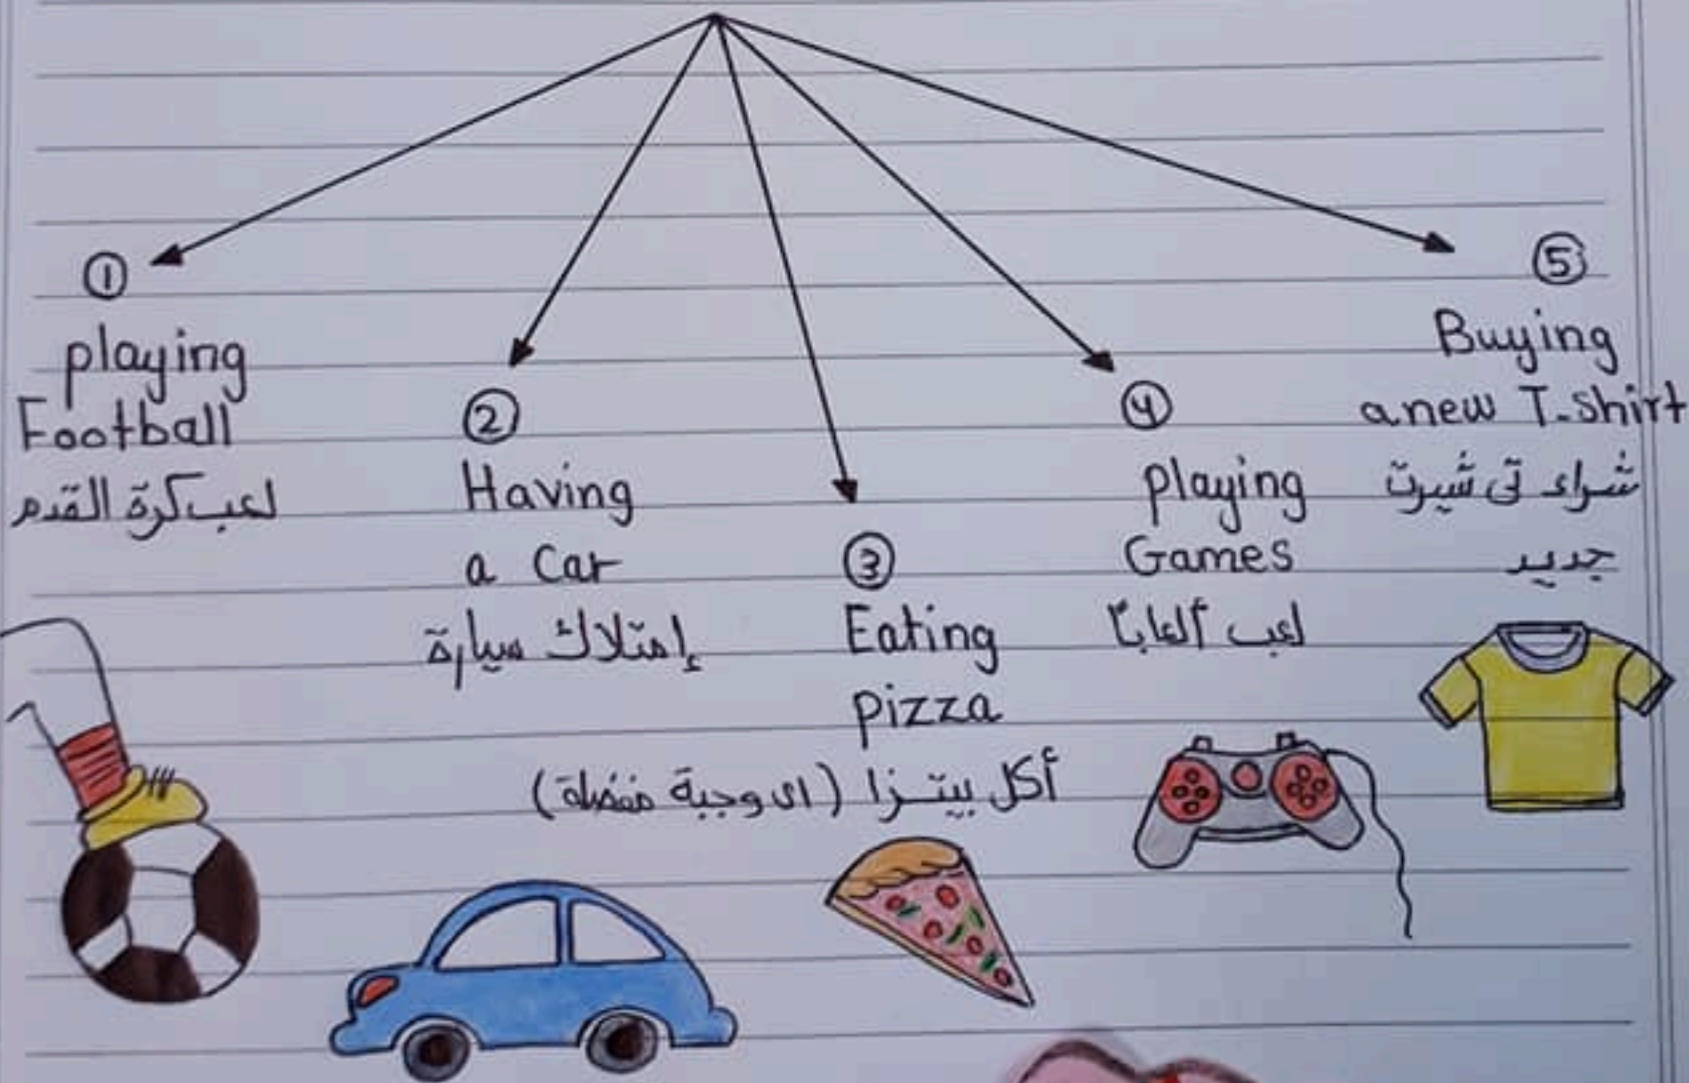 ①
playing
Football
لعب كرة القدم
②
Having
a Car
إمتلاك سيارة
③
Eating
pizza
أكل بيتزا (اى وجبة مفضلة)
④
playing
Games
لعب ألعاب
⑤
Buying
a new T-shirt
شراء تى شيرت
جديد